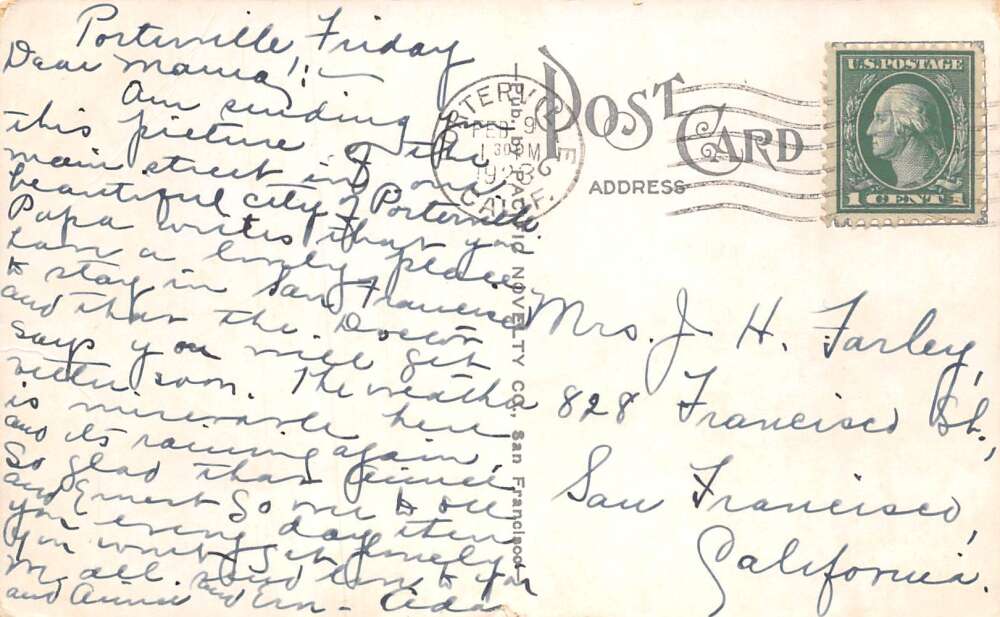 Porterville Friday
Dear Mama!:—
Am sending you
this picture of the
main street in our
beautiful city of Porterville.
Papa writes that you
have a lovely place
to stay in San Francisco
and that the Doctor
says you will get
better soon. The weather
is miserable here
and its raining again.
So glad that
and Ernest go over to see
you every day then
you won't get lonely for
us all. Love to you
and Annie and Ern - Ada
PORTERVILLE
FEB 9
1 30 PM
1923
CALIF.
Pub. by PACIFIC NOVELTY CO., San Francisco
POST CARD
ADDRESS
U.S. POSTAGE
1 CENT 1
Mrs. J. H. Farley,
828 Francisco St.,
San Francisco,
California.